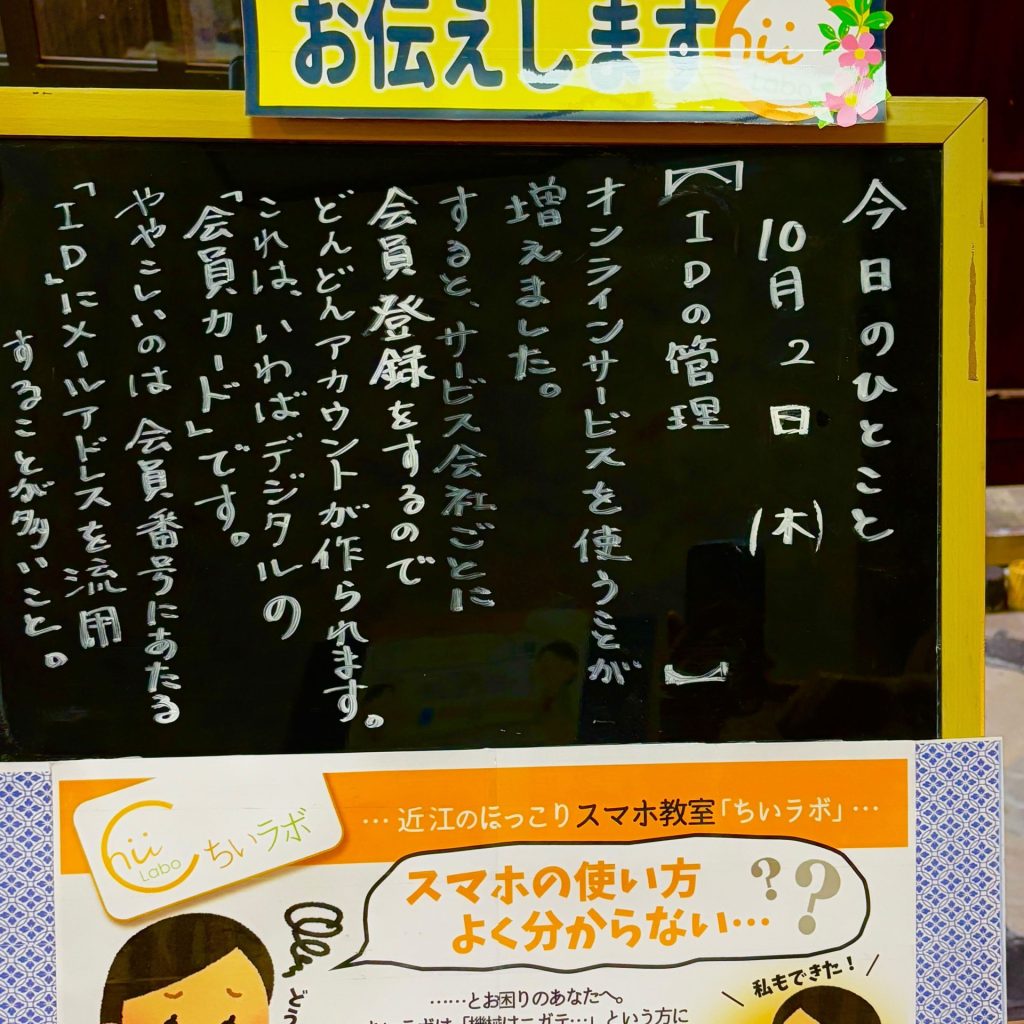 お伝えします
hii
Labo
今日のひとこと
10月2日(木)
【IDの管理】
オンラインサービスを使うことが
増えました。
すると、サービス会社ごとに
会員登録をするので
どんどんアカウントが作られます。
これは、いわばデジタルの
「会員カード」です。
ややこしいのは会員番号にあたる
「ID」にメールアドレスを流用
することが多いこと。
…近江のほっこりスマホ教室「ちいラボ」…
Chii
Labo
ちいラボ
スマホの使い方
よく分からない…
??
私もできた!
……とお困りのあなたへ。
ちいラボは「機械はニガテ…」という方に